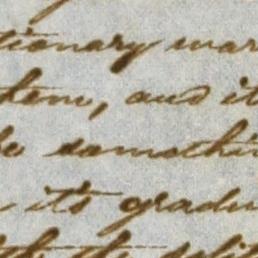 tionary war
hem, and it
be somethin
it's gradu